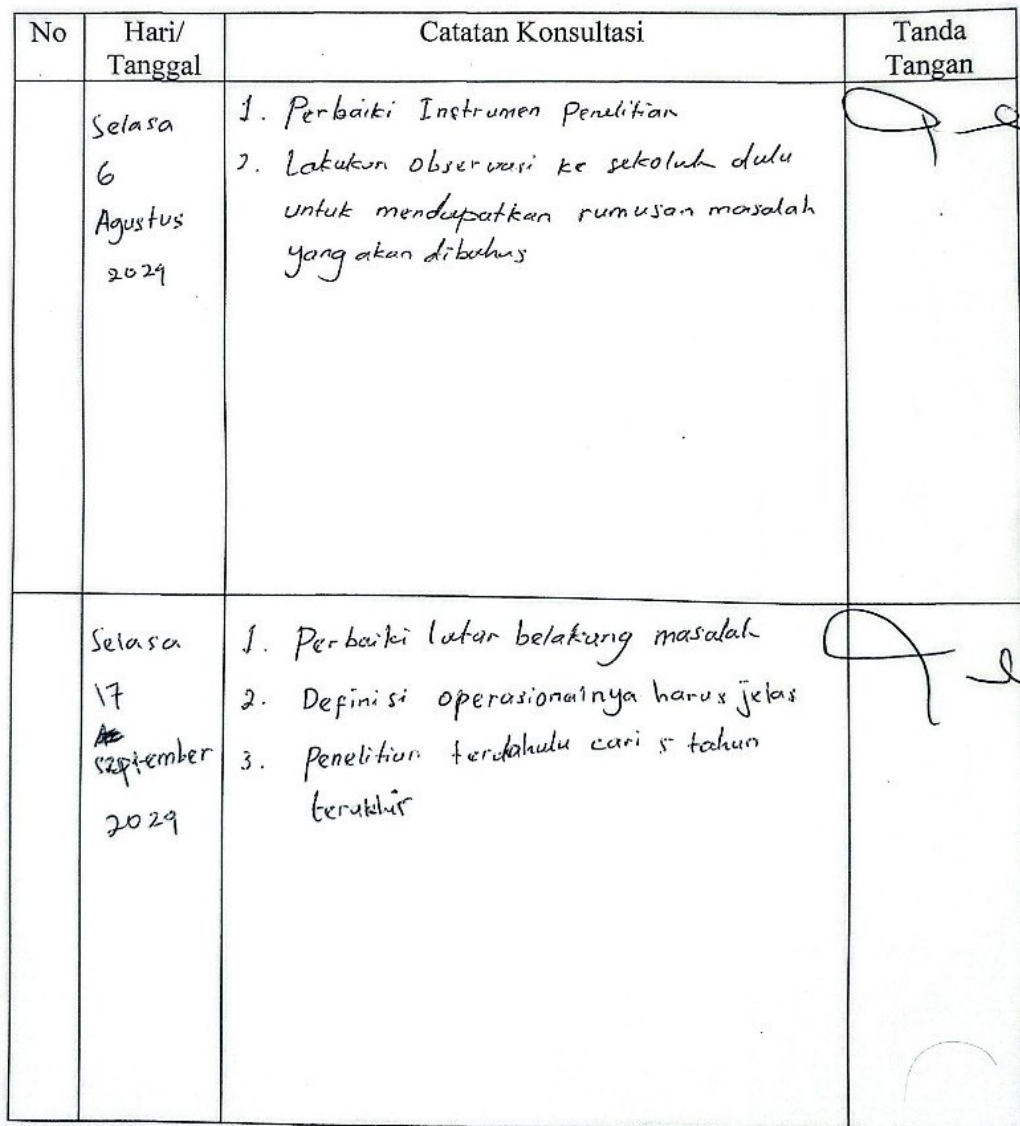 No Hari/ Catatan Konsultasi Tanda
Tanggal Tangan
Selasa
6
Agustus
2024
1. Perbaiki Instrumen Penelitian
2. Lakukan observasi ke sekolah dulu
untuk mendapatkan rumusan masalah
yang akan dibahas
Selasa
17
September
2024
1. Perbaiki latar belakang masalah
2. Definisi operasionalnya harus jelas
3. Penelitian terdahulu cari 5 tahun
terakhir